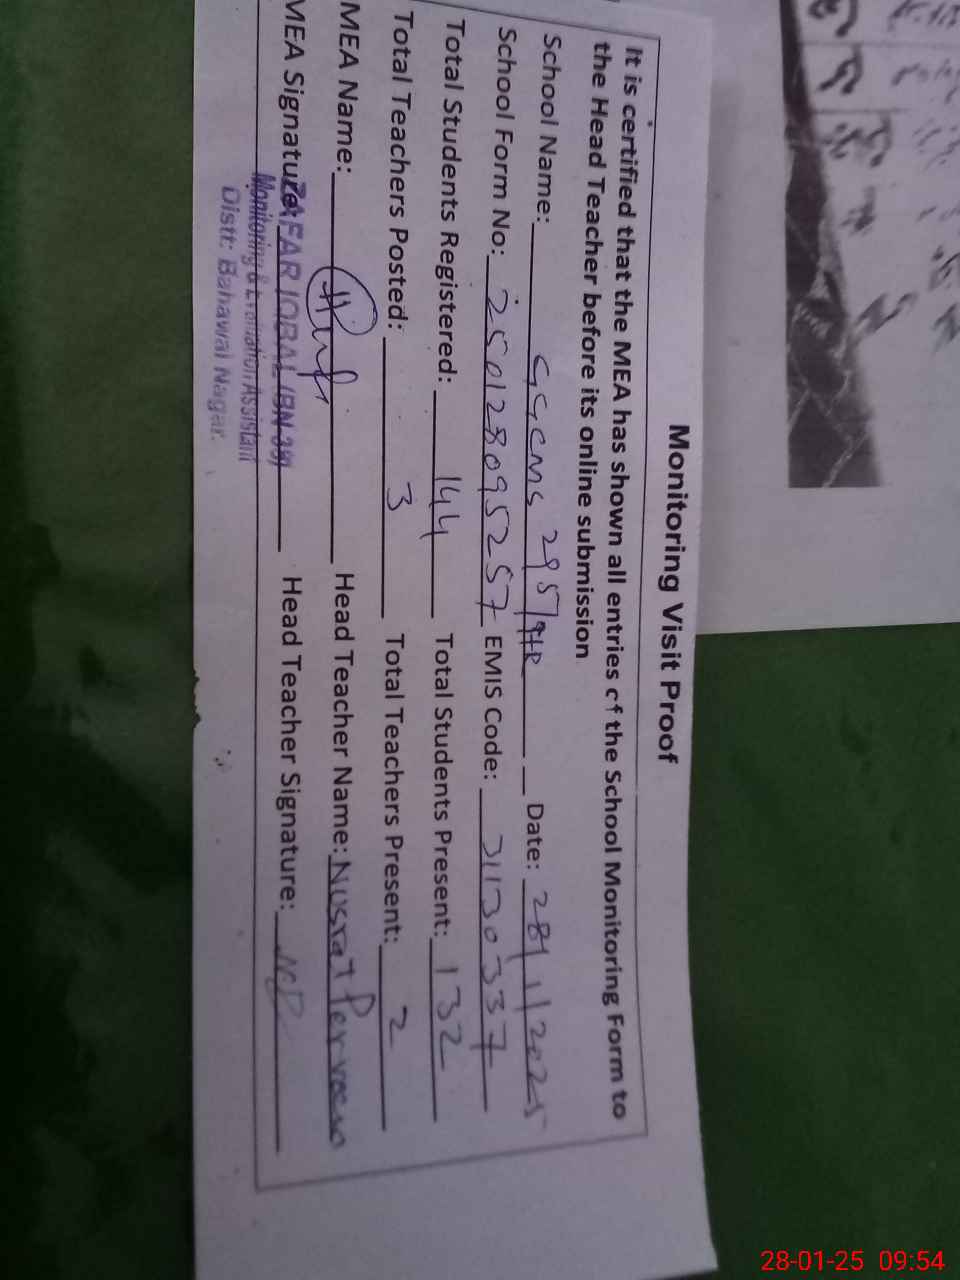 Monitoring Visit Proof
It is certified that the MEA has shown all entries of the School Monitoring Form to
the Head Teacher before its online submission
School Name: GGCMS 295/9HR Date: 28/1/2025
School Form No: 250128095257 EMIS Code: 31130337
Total Students Registered: 144 Total Students Present: 132
Total Teachers Posted: 3 Total Teachers Present: 2
MEA Name: Head Teacher Name: Nusrat Perveen
MEA Signature: ZAFAR IQBAL (BN 39) Head Teacher Signature: NP
Monitoring & Evaluation Assistant
Distt: Bahawal Nagar.
28-01-25 09:54